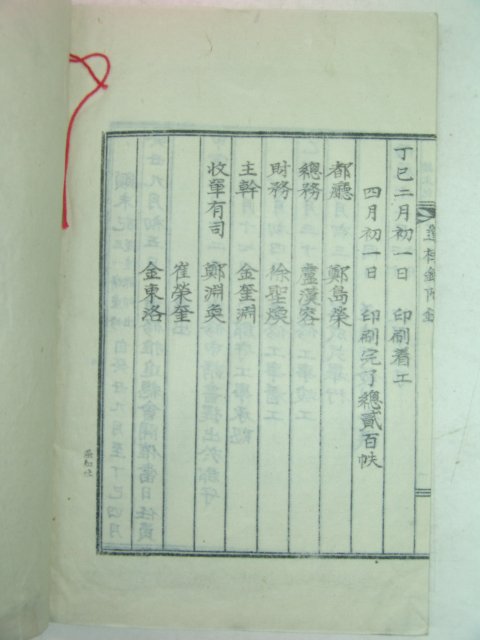 丁巳二月初一日 印刷着工
四月初一日 印刷完了總貳百帙
都廳 鄭島榮
總務 盧漢容
財務 徐聖煥
主幹 金奎淵
收單有司 鄭淵奐
崔榮奎
金東洛